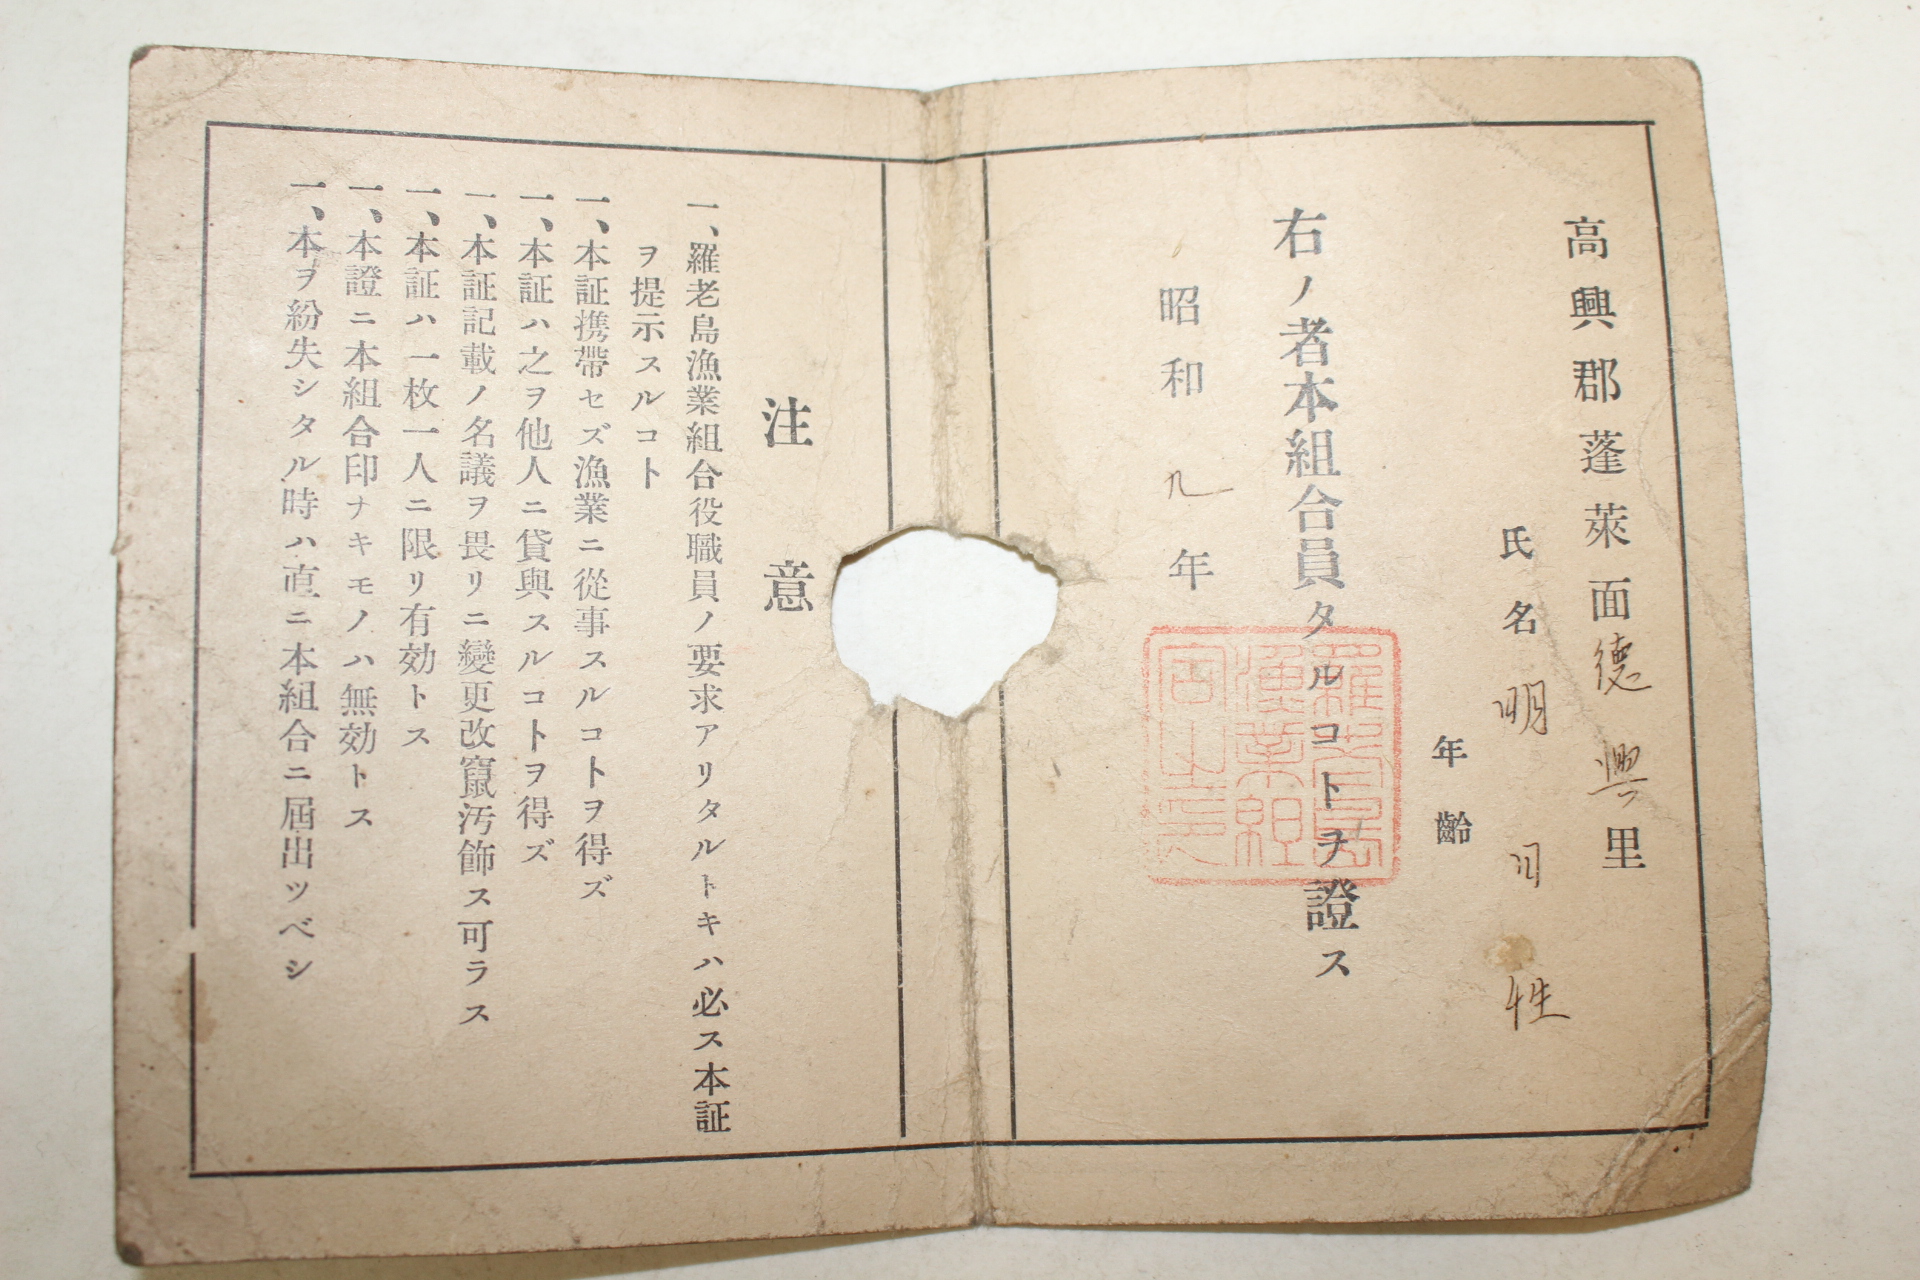 高興郡蓬萊面德興里
氏名 明 性
年齡
右ノ者本組合員タルコトヲ證ス
昭和九年
羅老島
漁業組
注意
一、羅老島漁業組合役職員ノ要求アリタルトキハ必ス本証
ヲ提示スルコト
一、本証携帶セズ漁業ニ從事スルコトヲ得ズ
一、本証ハ之ヲ他人ニ貸與スルコトヲ得ズ
一、本証記載ノ名議ヲ畏リニ變更改竄汚飾ス可ラス
一、本証ハ一枚一人ニ限リ有効トス
一、本證ニ本組合印ナキモノハ無効トス
一、本ヲ紛失シタル時ハ直ニ本組合ニ届出ツベシ